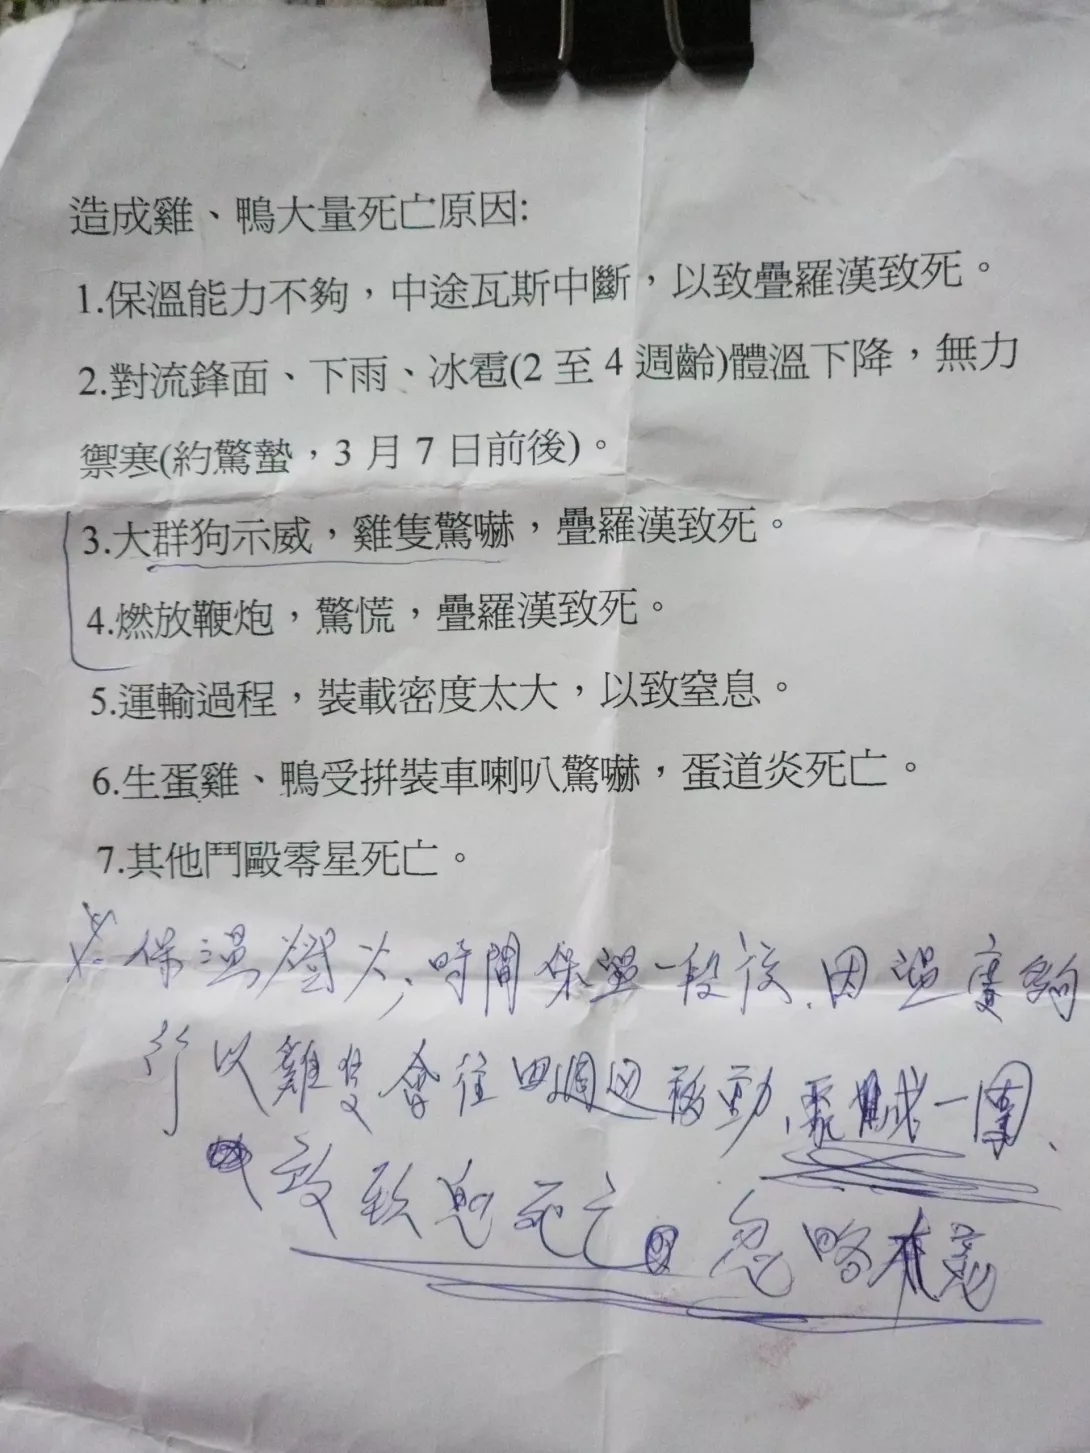 造成雞、鴨大量死亡原因:
1.保溫能力不夠，中途瓦斯中斷，以致疊羅漢致死。
2.對流鋒面、下雨、冰雹(2 至 4 週齡)體溫下降，無力
禦寒(約驚蟄，3 月 7 日前後)。
3.大群狗示威，雞隻驚嚇，疊羅漢致死。
4.燃放鞭炮，驚慌，疊羅漢致死。
5.運輸過程，裝載密度太大，以致窒息。
6.生蛋雞、鴨受拼裝車喇叭驚嚇，蛋道炎死亡。
7.其他鬥毆零星死亡。
保溫 火，時間保溫一段後，因溫度夠
所以雞隻會往四週邊移動，聚 一團、
死亡。忽略